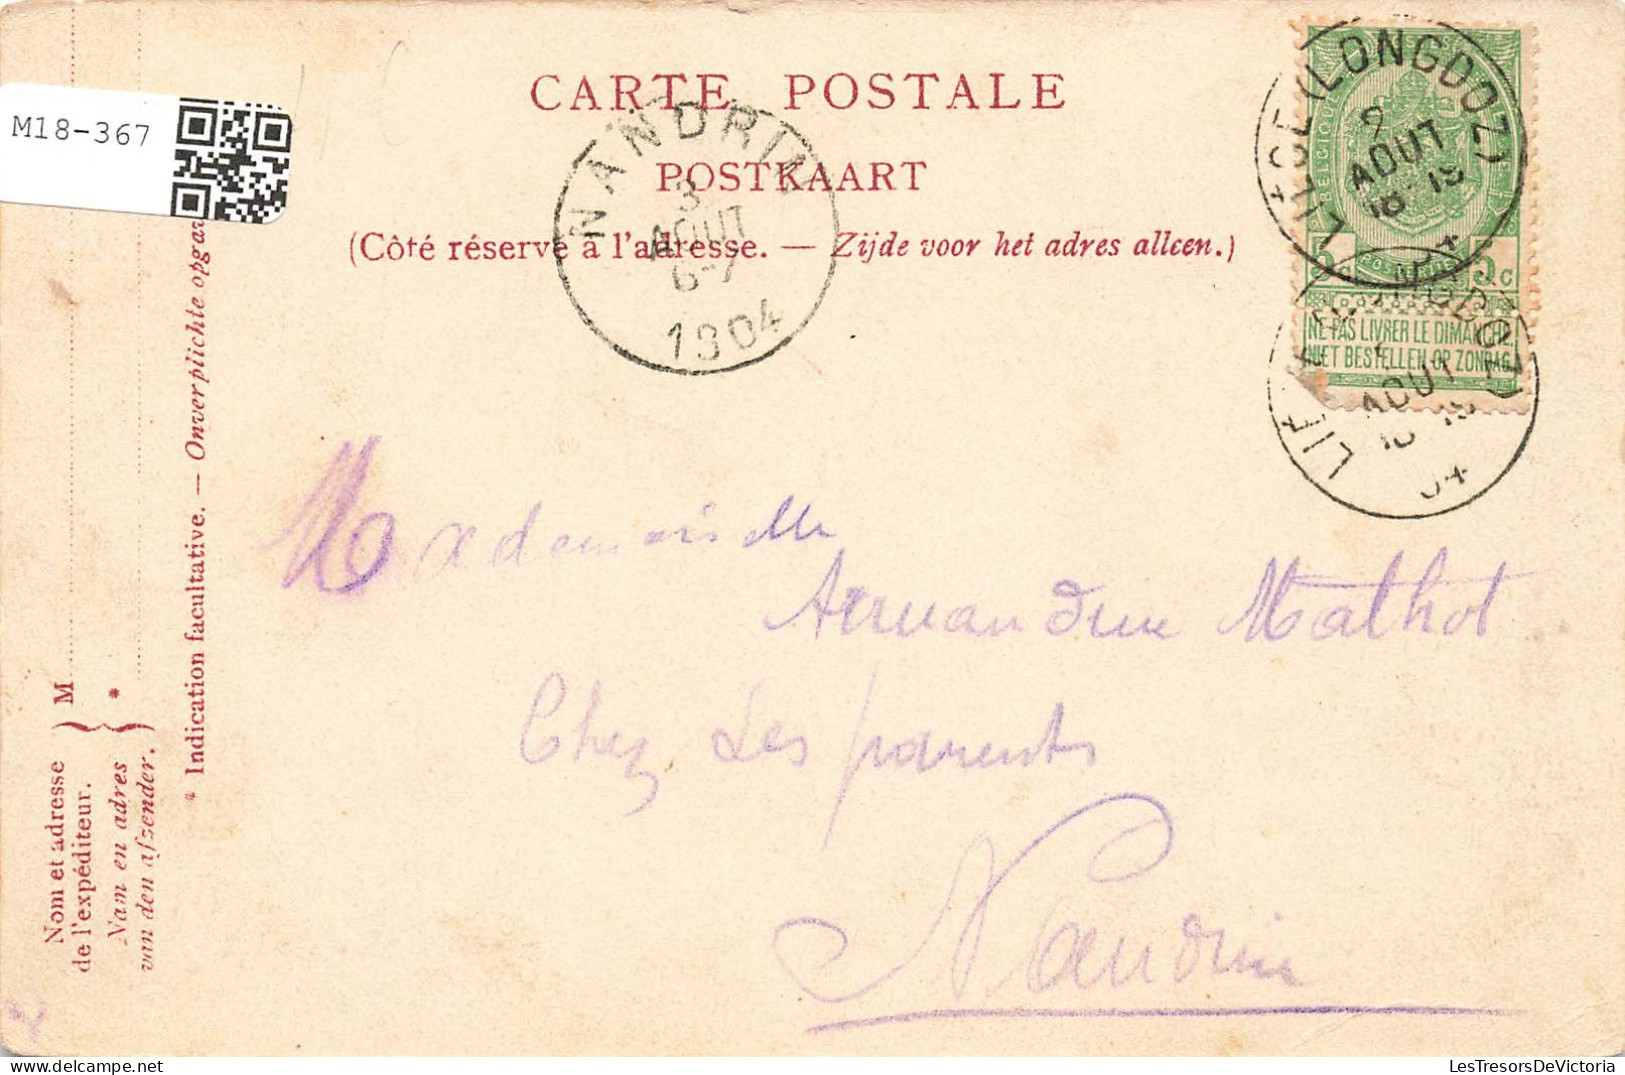 M18-367
CARTE POSTALE
POSTKAART
(Côté réservé à l'adresse. — Zijde voor het adres alleen.)
NANDRIN
3
AOUT
6-7
1904
LIÈGE (LONGDOZ)
9
AOUT
18-19
BELGIQUE
5c 5c
NE PAS LIVRER LE DIMANCHE
NIET BESTELLEN OP ZONDAG
AOUT
18-19
04
Mademoiselle
Armandine Mathot
Chez Les parents
Nandrin
Nom et adresse
de l'expéditeur.
Nam en adres
van den afzender.
M
*
* Indication facultative. — Onverplichte opgav
LesTresorsDeVictoria